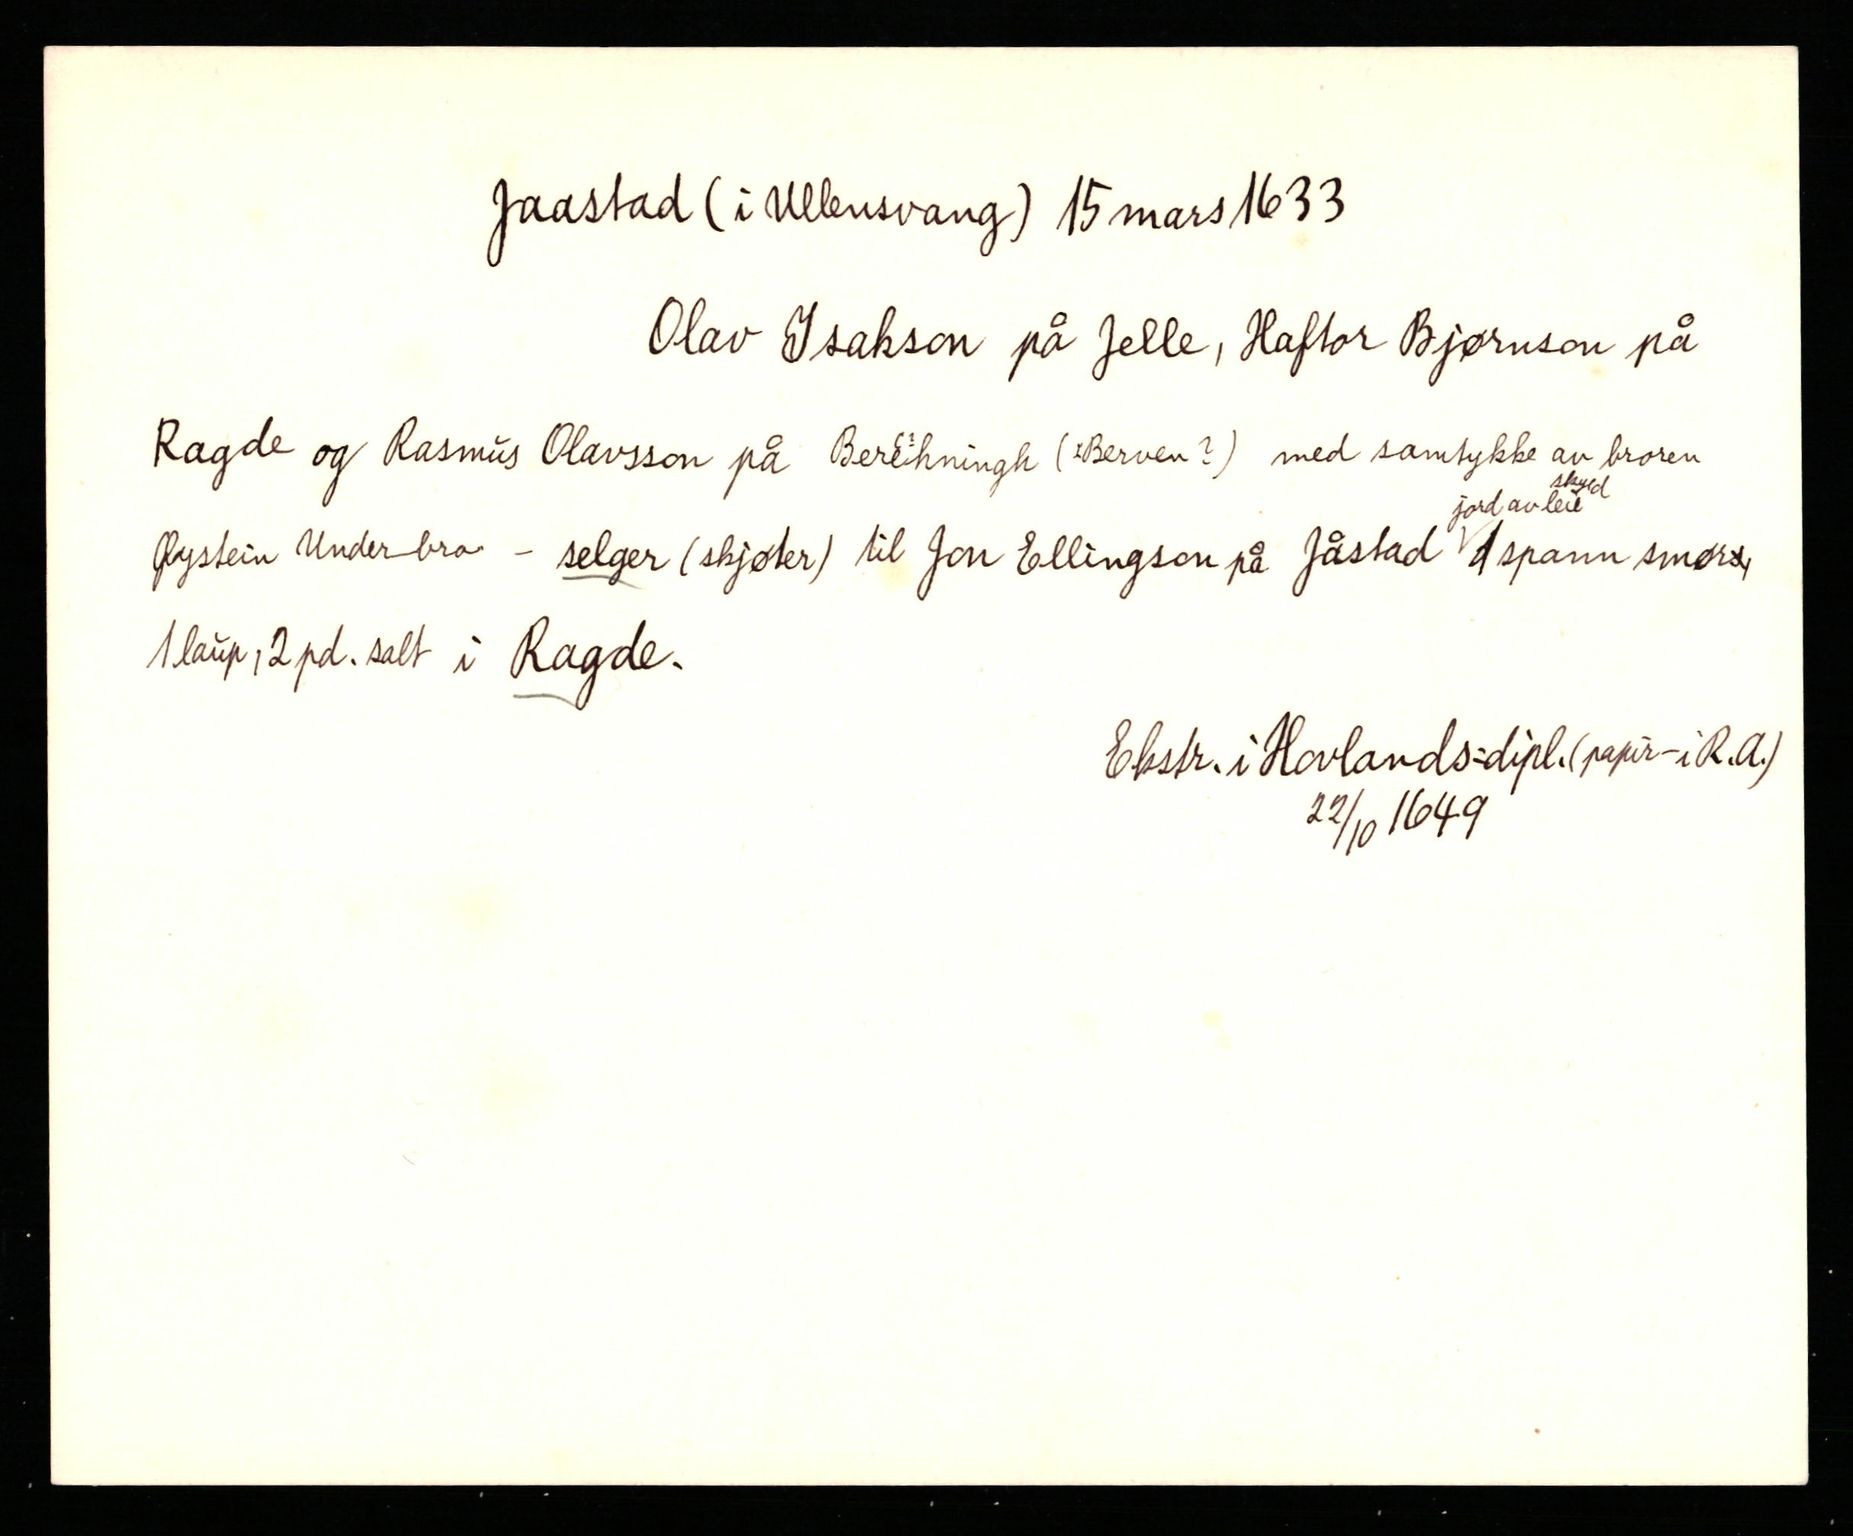 Jaastad (i Ullensvang) 15 mars 1633
Olav Isakson på Jelle, Haftor Bjørnson på
Ragde og Rasmus Olavsson på (: Berven?) med samtykke av broren
skyld
jord av leie
Øystein Under-bro - selger (skjøter) til Jon Ellingson på Jåstad 1 spann smørs,
1 laup, 2 pd. salt i Ragde.
Ekstr. i Hovlands=dipl. (papir - i R.A.)
22/10 1649